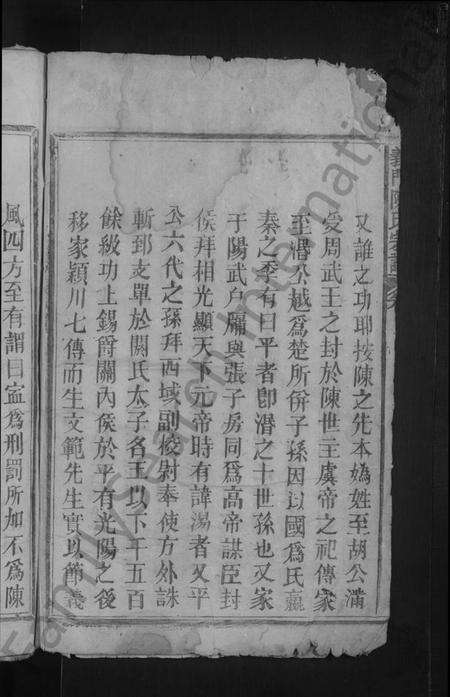 又誰之功耶按陳之先本媯姓至胡公滿
受周武王之封於陳世主虞帝之祀傳家
至湣公越為楚所併子孫因以國為氏嬴
秦之季有曰平者即湣之十世孫也又家
于陽武戶牖與張子房同為高帝謀臣封
侯拜相光顯天下元帝時有諱湯者又平
公六代之孫拜西域副校尉奉使方外誅
斬郅支單於閼氏太子名王以下千五百
餘級功上錫爵關內侯於平有光陽之後
移家潁川七傳而生文範先生實以節義
風四方至有謂曰寧為刑罰所加不為陳
義門陳氏宗譜
FamilySearch International